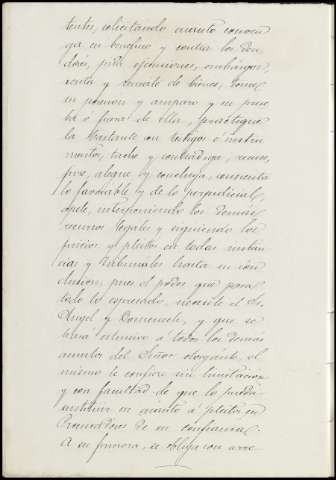 tentes, solicitando cuanto conven
ga en beneficio y contra los deu
dores, pida ejecuciones, embargos,
venta y remate de bienes, tome
su posesion y amparo y en prue
ba ó fuera de ella, practique
la bastante con testigos é instru
mentos, tache y contradiga, recuse,
jure, alegue y concluya, consienta
lo favorable y de lo perjudicial
apele, interponiendo los demas
recursos legales y siguiendo los
juicios y pleitos en todas instan
cias y tribunales hasta su con
clusion, pues el poder que para
todo lo espresado, necesite el Sr.
Angel y Domenech, y que se
hará estensivo á todos los demas
asuntos del Señor otorgante, el
mismo le confiere sin limitacion
y con facultad de que lo pueda
sustituir en cuanto á pleitos en
Procuradores de su confianza.
A su firmeza, se obliga con arre-